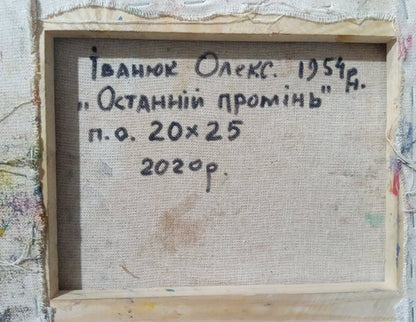 Іванюк Олекс. 1954 р.н.
„Останній промінь"
п.о. 20x25
2020р.